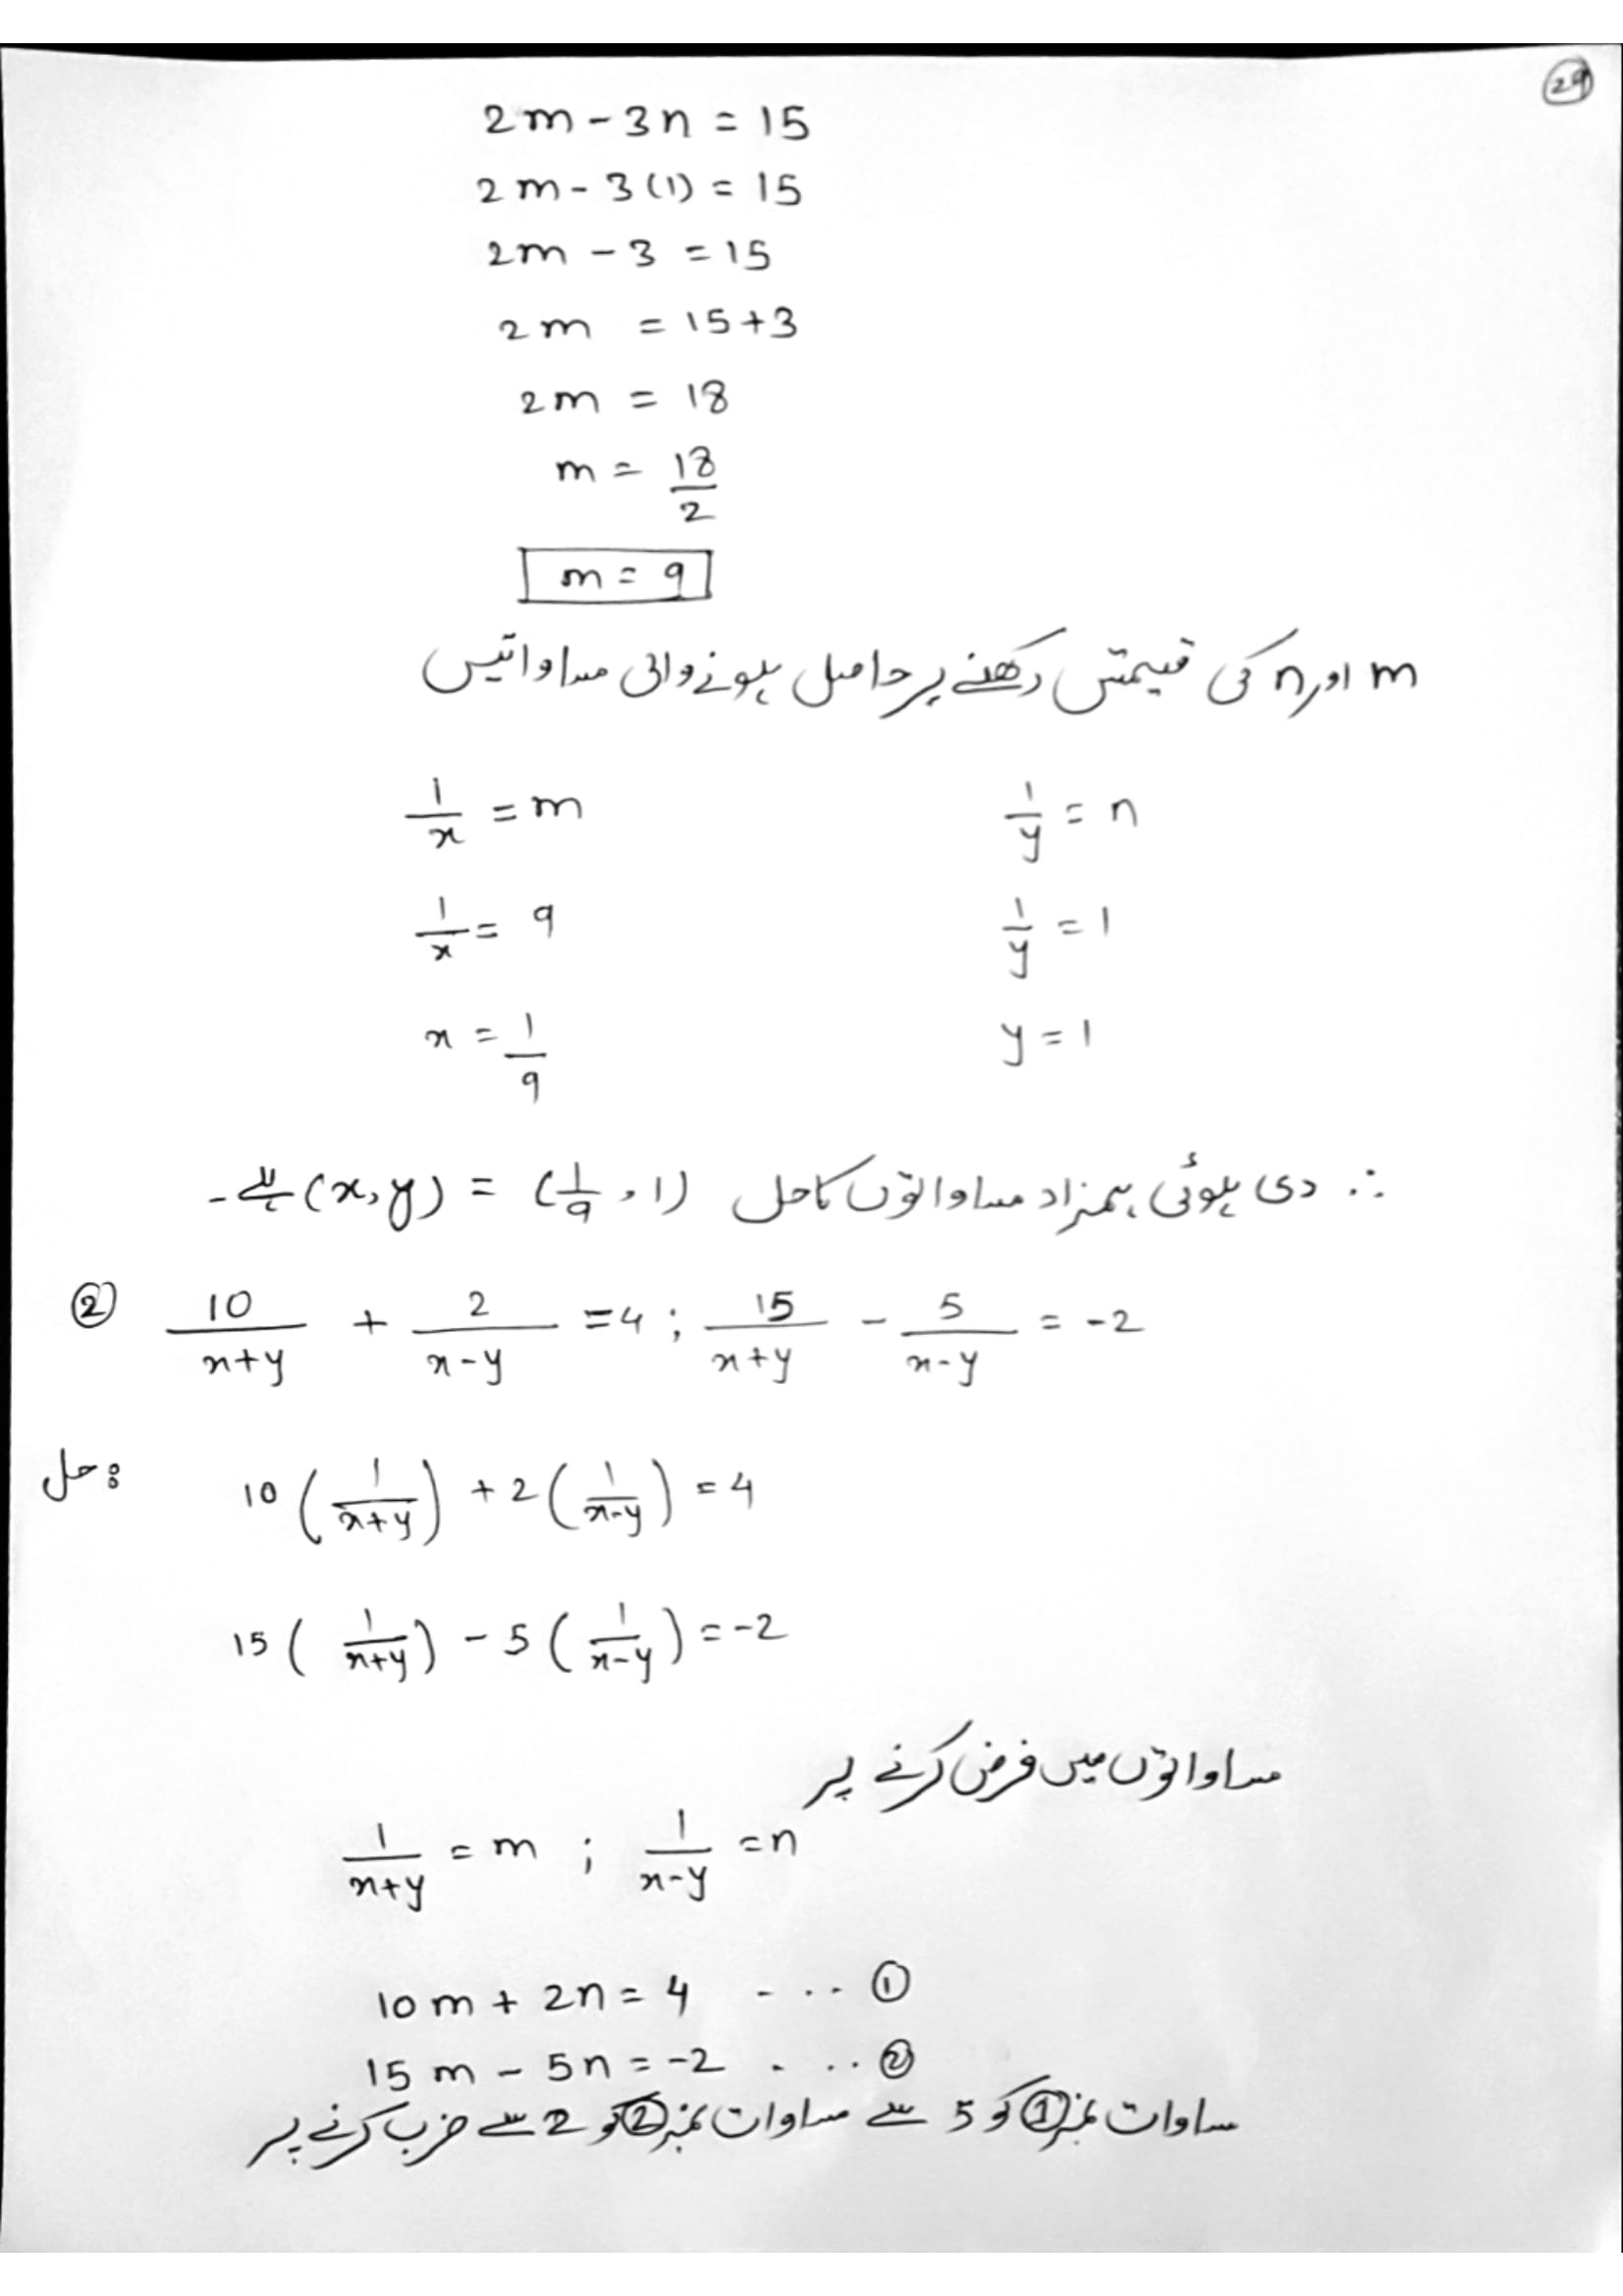 29
2m - 3n = 15
2m - 3(1) = 15
2m - 3 = 15
2m = 15+3
2m = 18
m = 18/2
m = 9
m اور n کی قیمتیں رکھنے پر حاصل ہونے والی مساواتیں
1/x = m    1/y = n
1/x = 9    1/y = 1
x = 1/9    y = 1
∴ دی ہوئی ہمزاد مساواتوں کا حل (x,y) = (1/9, 1) ہے۔
② 10/(x+y) + 2/(x-y) = 4 ; 15/(x+y) - 5/(x-y) = -2
حل: 10(1/(x+y)) + 2(1/(x-y)) = 4
15(1/(x+y)) - 5(1/(x-y)) = -2
مساواتوں میں فرض کرنے پر
1/(x+y) = m ; 1/(x-y) = n
10m + 2n = 4 - ... ①
15m - 5n = -2 . ... ②
مساوات نمبر ① کو 5 سے مساوات نمبر ② کو 2 سے ضرب کرنے پر